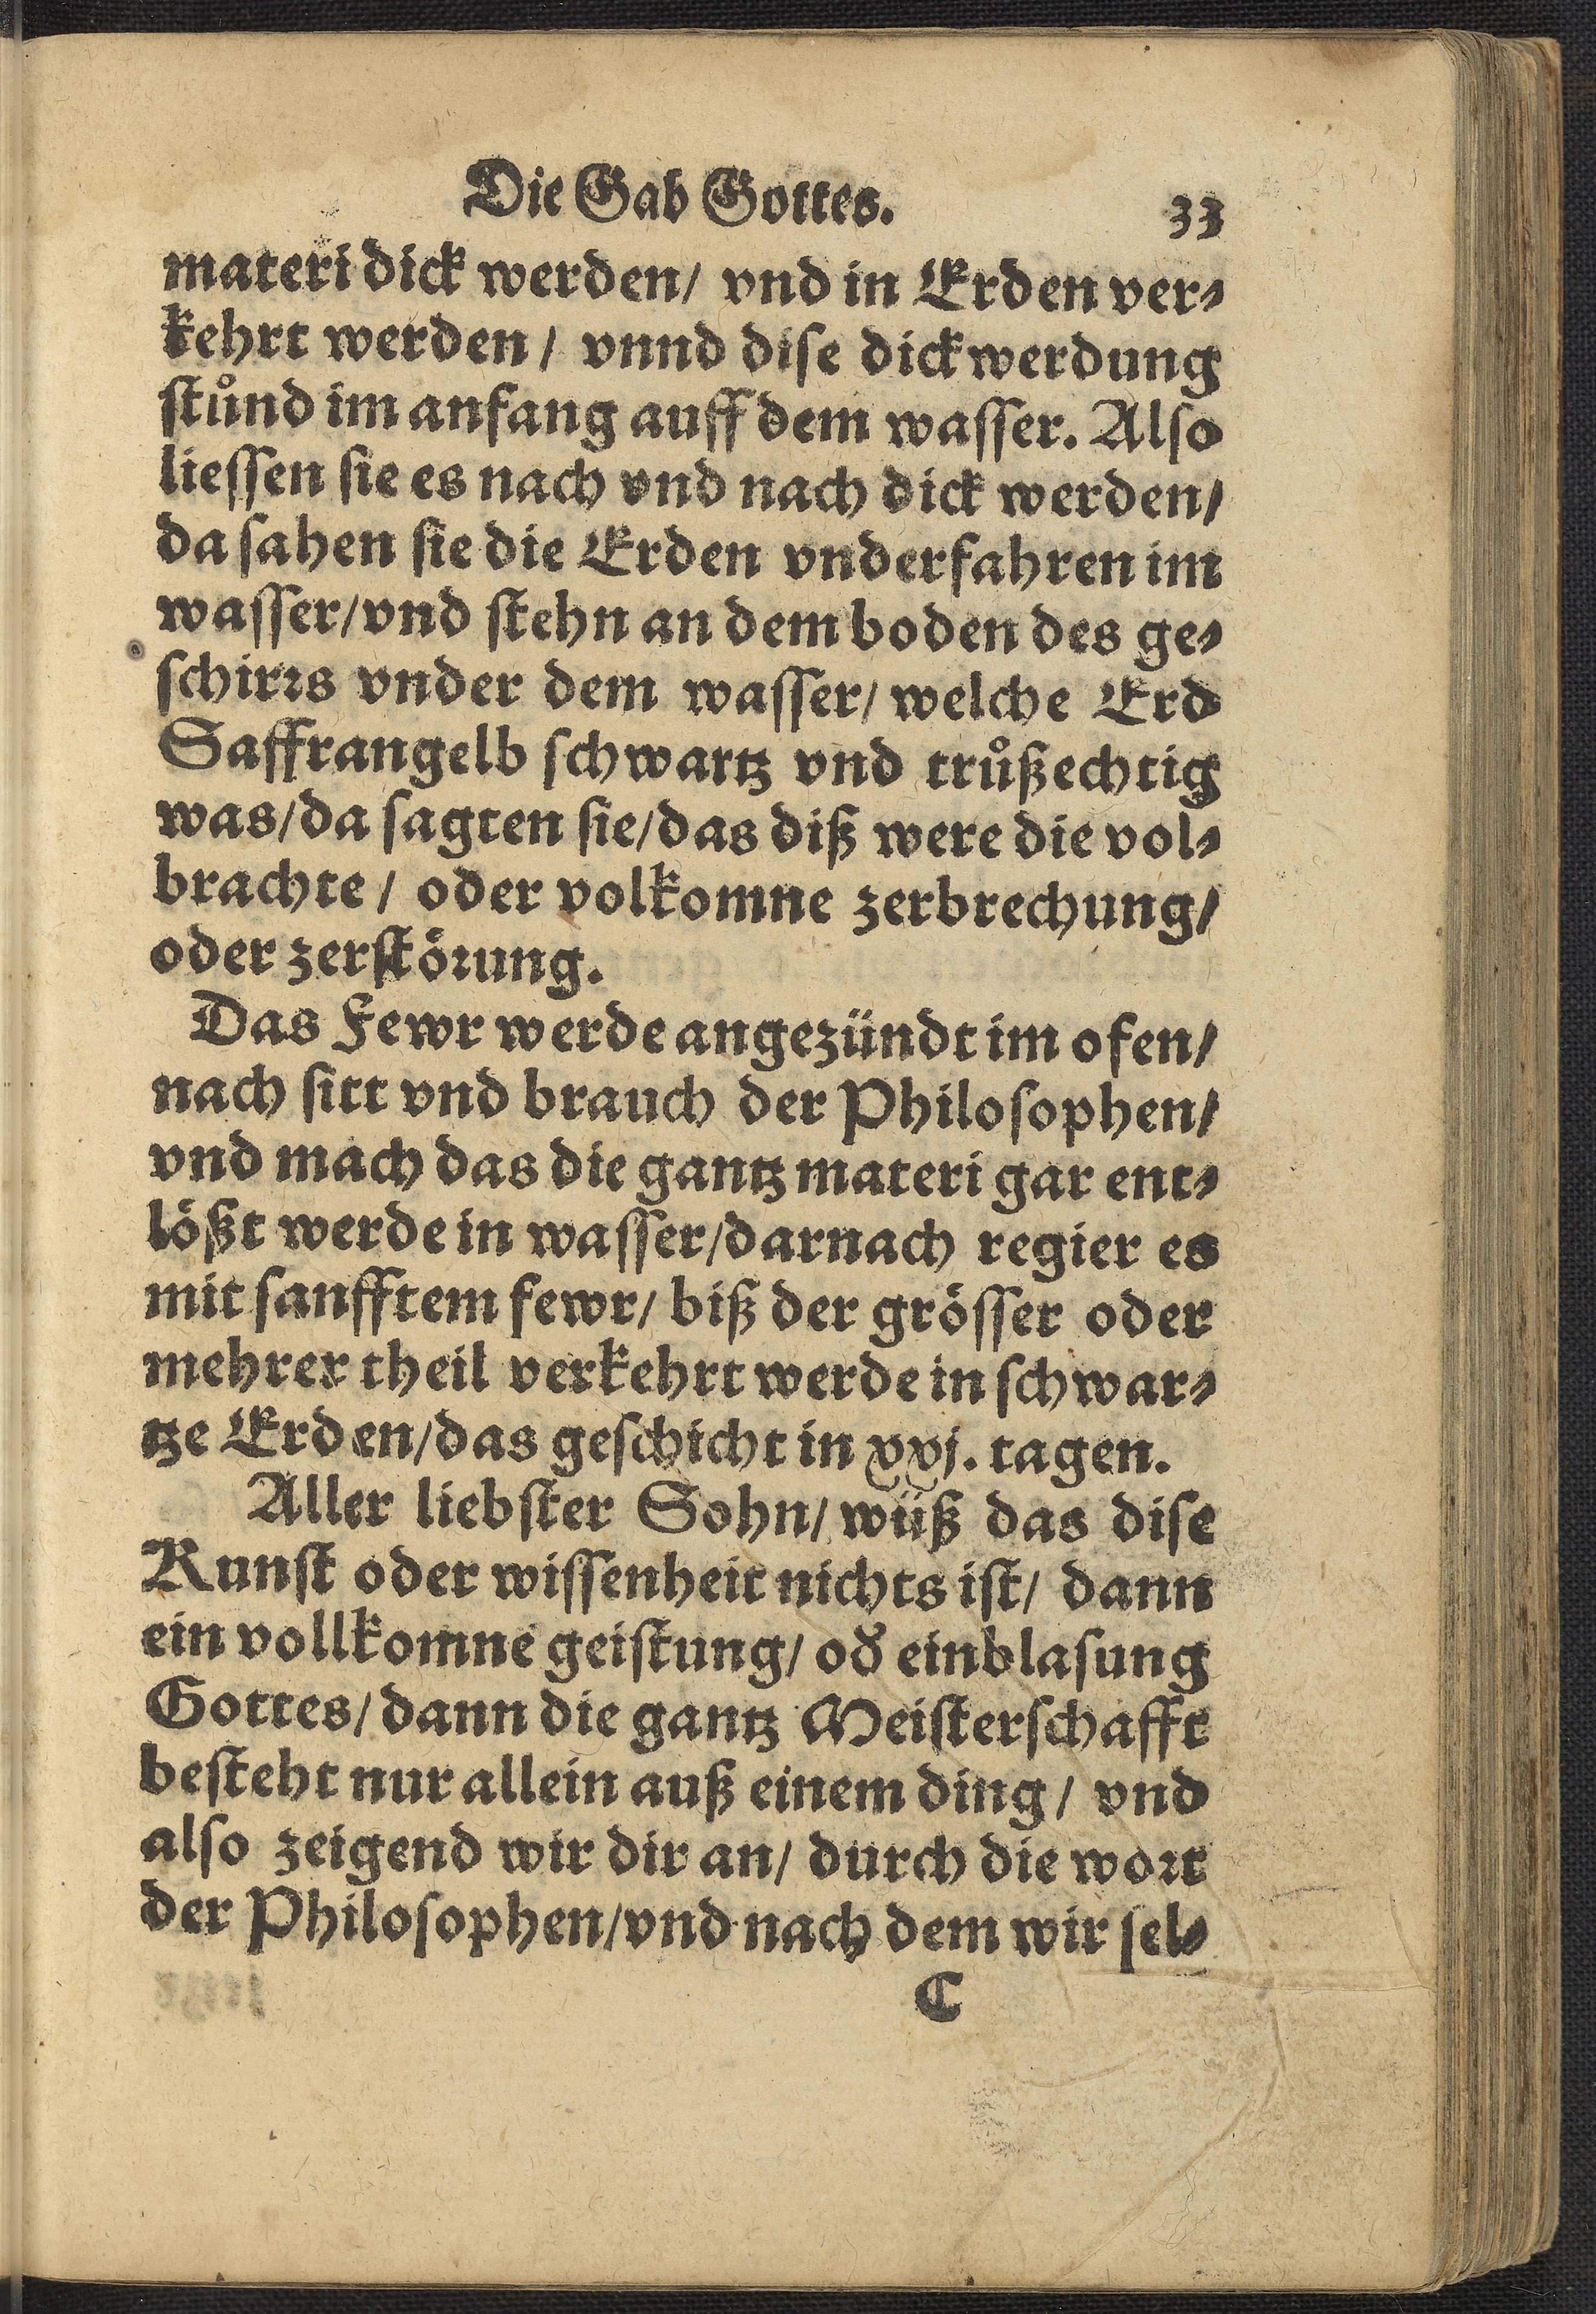 Die Gab Gottes. 33
materi dick werden/ vnd in Erden ver⸗
kehrt werden/ vnnd dise dickwerdung
ſtůnd im anfang auff dem waſſer. Alſo
lieſſen ſie es nach vnd nach dick werden/
da ſahen ſie die Erden vnderfahren im
waſſer/vnd ſtehn an dem boden des ge⸗
ſchirꝛs vnder dem waſſer/ welche Erd
Saffrangelb ſchwartz vnd trůßechtig
was/da ſagten ſie/das diß were die vol⸗
brachte/ oder volkomne zerbrechung/
oder zerſtöꝛung.
Das Fewr werde angezündt im ofen/
nach ſitt vnd brauch der Philoſophen/
vnd mach das die gantz materi gar ent⸗
lößt werde in waſſer/darnach regier es
mit ſanfftem fewr/ biß der gröſſer oder
mehrer theil verkehrt werde in ſchwar⸗
tze Erden/das geſchicht in xxj. tagen.
Aller liebſter Sohn/ wüß das diſe
Kunſt oder wiſſenheit nichts iſt/ dann
ein vollkomne geiſtung/ oď einblaſung
Gottes/dann die gantz Meiſterſchafft
beſteht nur allein auß einem ding/ vnd
alſo zeigend wir dir an/ durch die woꝛt
der Philoſophen/vnd nach dem wir ſel⸗
C